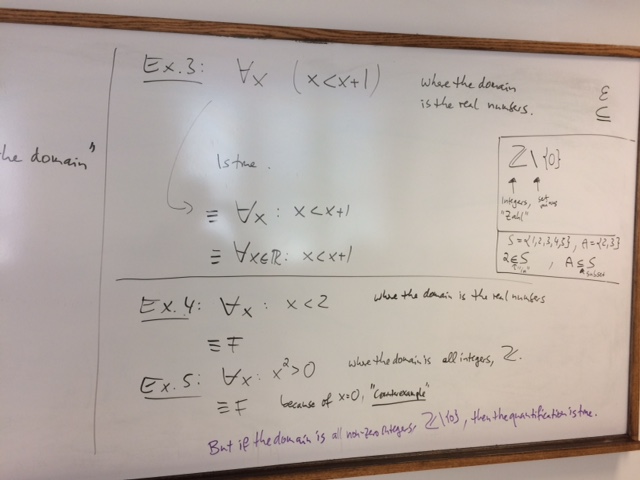 he domain"
Ex.3: ∀x (x<x+1) where the domain
is the real numbers.
Is true.
≡ ∀x : x<x+1
≡ ∀x∈ℝ: x<x+1
ε
⊆
ℤ\{0}
Integers, set minus
"Zahl"
S={1,2,3,4,5}, A={2,3}
2∈S , A⊆S
"in" subset
Ex.4: ∀x : x<2 where the domain is the real numbers
≡F
Ex.5: ∀x: x²>0 where the domain is all integers, ℤ.
≡F because of x=0, "Counterexample"
But if the domain is all non-zero integers, ℤ\{0}, then the quantification is true.